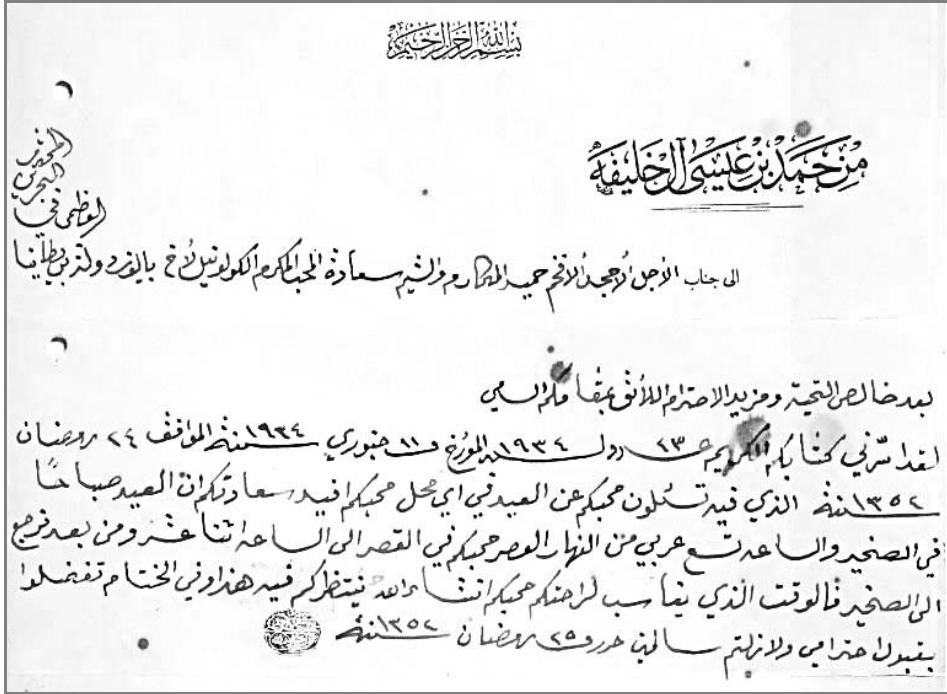 بسم الله الرحمن الرحيم
من حمد بن عيسى آل خليفه
الى جناب الأجل الأمجد الأفخم حميد المكارم والشيم سعادة المحب المكرم الكولونيل لاخ باليوز دولة بريطانيا
العظمى في
البحرين
المحترم
بعد خالص التحية ومزيد الاحترام اللائق بمقامكم السامي
لقد اسّرني كتابكم الكريم عـ ٢٣ ـدد ولـ ١٩٣٤ ـنه المورخ و ١١ جنوري ١٩٣٤ سنة الموافق ٢٤ رمضان
١٣٥٢ سنة الذي فيه تسئلون محبكم عن العيد في اي محل محبكم افيد سعادتكم ان العيد صباحًا
في الصخير والساعه تسع عربي من النهار العصر محبكم في القصر الى الساعه اثنا عشر ومن بعد نرجع
الى الصخير فالوقت الذي يناسب لراحتكم محبكم انشاء الله ينتظركم فيه هذا وفي الختام تفضلوا
بقبول احترامي ولازلتم سالمين حرر و ٢٥ رمضان ١٣٥٢ سنة